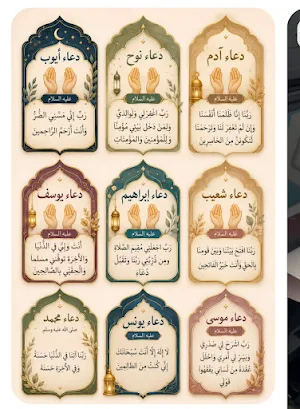 دعاء آدم
عليه السلام
رَبَّنَا ظَلَمْنَا أَنْفُسَنَا
وَإِنْ لَمْ تَغْفِرْ لَنَا وَتَرْحَمْنَا
لَنَكُونَنَّ مِنَ الْخَاسِرِينَ
دعاء نوح
عليه السلام
رَبِّ اغْفِرْ لِي وَلِوَالِدَيَّ
وَلِمَنْ دَخَلَ بَيْتِيَ مُؤْمِنًا
وَلِلْمُؤْمِنِينَ وَالْمُؤْمِنَاتِ
دعاء أيوب
عليه السلام
رَبِّ إِنِّي مَسَّنِيَ الضُّرُّ
وَأَنْتَ أَرْحَمُ الرَّاحِمِينَ
دعاء شعيب
عليه السلام
رَبَّنَا افْتَحْ بَيْنَنَا وَبَيْنَ قَوْمِنَا
بِالْحَقِّ وَأَنْتَ خَيْرُ الْفَاتِحِينَ
دعاء إبراهيم
عليه السلام
رَبِّ اجْعَلْنِي مُقِيمَ الصَّلَاةِ
وَمِنْ ذُرِّيَّتِي رَبَّنَا وَتَقَبَّلْ
دُعَاءِ
دعاء يوسف
عليه السلام
أَنْتَ وَلِيِّي فِي الدُّنْيَا
وَالْآخِرَةِ تَوَفَّنِي مُسْلِمًا
وَأَلْحِقْنِي بِالصَّالِحِينَ
دعاء موسى
عليه السلام
رَبِّ اشْرَحْ لِي صَدْرِي
وَيَسِّرْ لِي أَمْرِي وَاحْلُلْ
عُقْدَةً مِنْ لِسَانِي يَفْقَهُوا
قَوْلِي
دعاء يونس
عليه السلام
لَا إِلَهَ إِلَّا أَنْتَ سُبْحَانَكَ
إِنِّي كُنْتُ مِنَ الظَّالِمِينَ
دعاء محمد
صلى الله عليه وسلم
رَبَّنَا آتِنَا فِي الدُّنْيَا حَسَنَةً
وَفِي الْآخِرَةِ حَسَنَةً